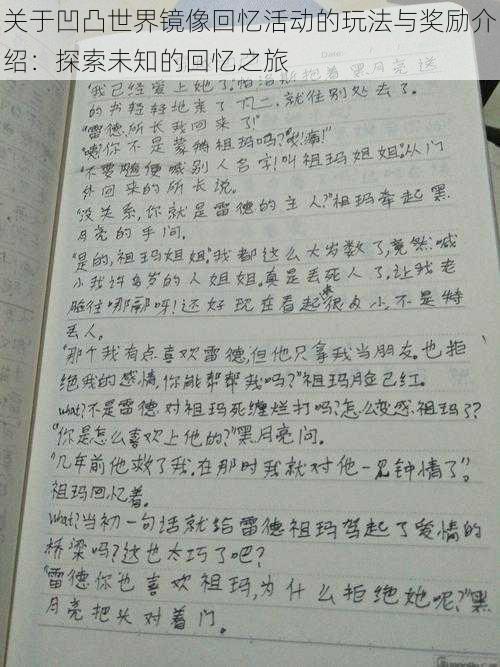 关于凹凸世界镜像回忆活动的玩法与奖励介
绍：探索未知的回忆之旅
"我已经爱上她了。"帕洛斯把着黑月亮送
的书轻轻地亲了几二，就往别处去了。
"雷德所长我回来了！"
"噫！你不是蒙特祖玛吗？""嘭！痛！"
"不要随便喊别人名字！叫祖玛姐姐。"从门
外回来的所长说。
"没关系，你就是雷德的主人？"祖玛牵起黑
月亮的手问。
"是的，祖玛姐姐"我都这么大岁数了，竟然喊
小我许多岁的人姐姐，真是丢死人了，让我老
脸往哪那呀！还好现在看起来很小，不是特
丢人。
"那个我有点喜欢雷德，但他只拿我当朋友。也拒
绝我的感情，你能帮帮我吗？"祖玛脸已红。
what？不是雷德对祖玛死缠烂打吗？怎么变惑祖玛了？？
"你是怎么喜欢上他的？"黑月亮问。
"几年前他救了我。在那时我就对他一见钟情了"，
祖玛回忆着。
what？当初一句话就给雷德祖玛驾起了爱情的
桥梁吗？这也太巧了吧？
"雷德你也喜欢祖玛，为什么拒绝她呢？"黑
月亮把头对着门。